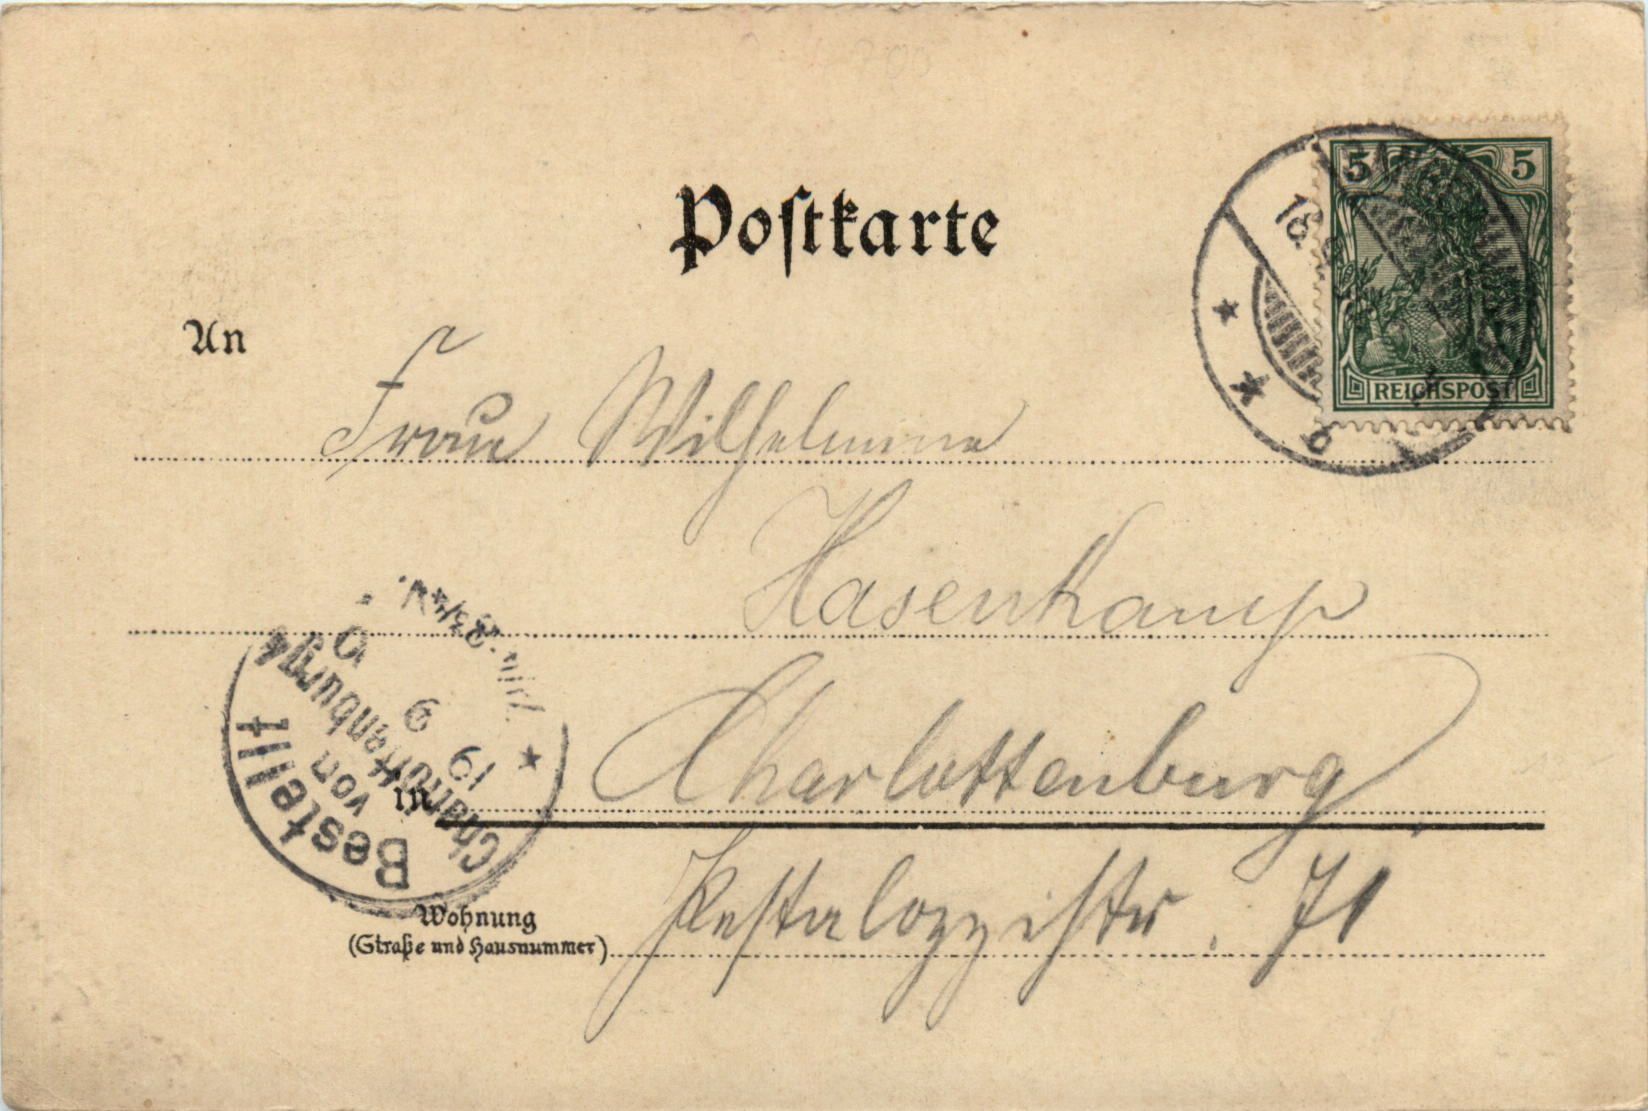 Postkarte
5 5
REICHSPOST
18.
An
Frau Wilhelmine
Hasenkamp
in Charlottenburg
Wohnung
(Straße und Hausnummer) Pestalozzistr. 71
Bestellt
von
Charlottenburg 4
19 9 0